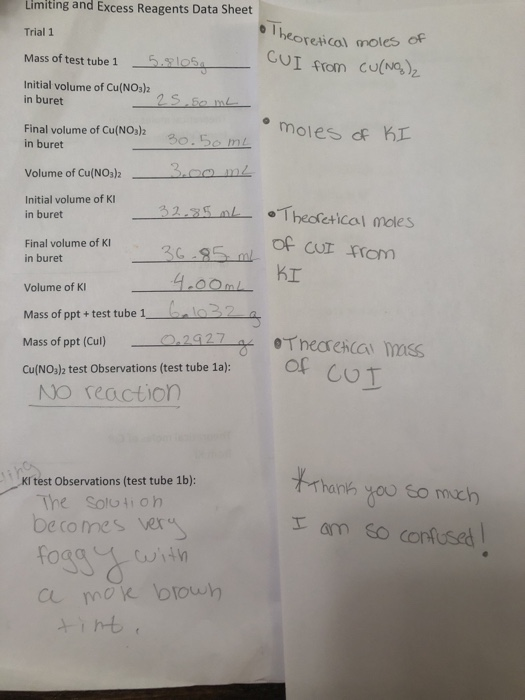 Limiting and Excess Reagents Data Sheet
Trial 1
Mass of test tube 1 5.8105g
Initial volume of Cu(NO₃)₂
in buret 25.50 mL
Final volume of Cu(NO₃)₂
in buret 30.50 mL
Volume of Cu(NO₃)₂ 3.00 mL
Initial volume of KI
in buret 32.85 mL
Final volume of KI
in buret 36.85 mL
Volume of KI 4.00mL
Mass of ppt + test tube 1 6.1032 g
Mass of ppt (CuI) 0.2927 g
Cu(NO₃)₂ test Observations (test tube 1a):
No reaction
KI test Observations (test tube 1b):
The solution
becomes very
foggy with
a more brown
tint.
• Theoretical moles of
CUI from CU(NO₃)₂
• moles of KI
• Theoretical moles
of CUI from
KI
• Theoretical mass
of CUI
* Thank you so much
I am so confused!